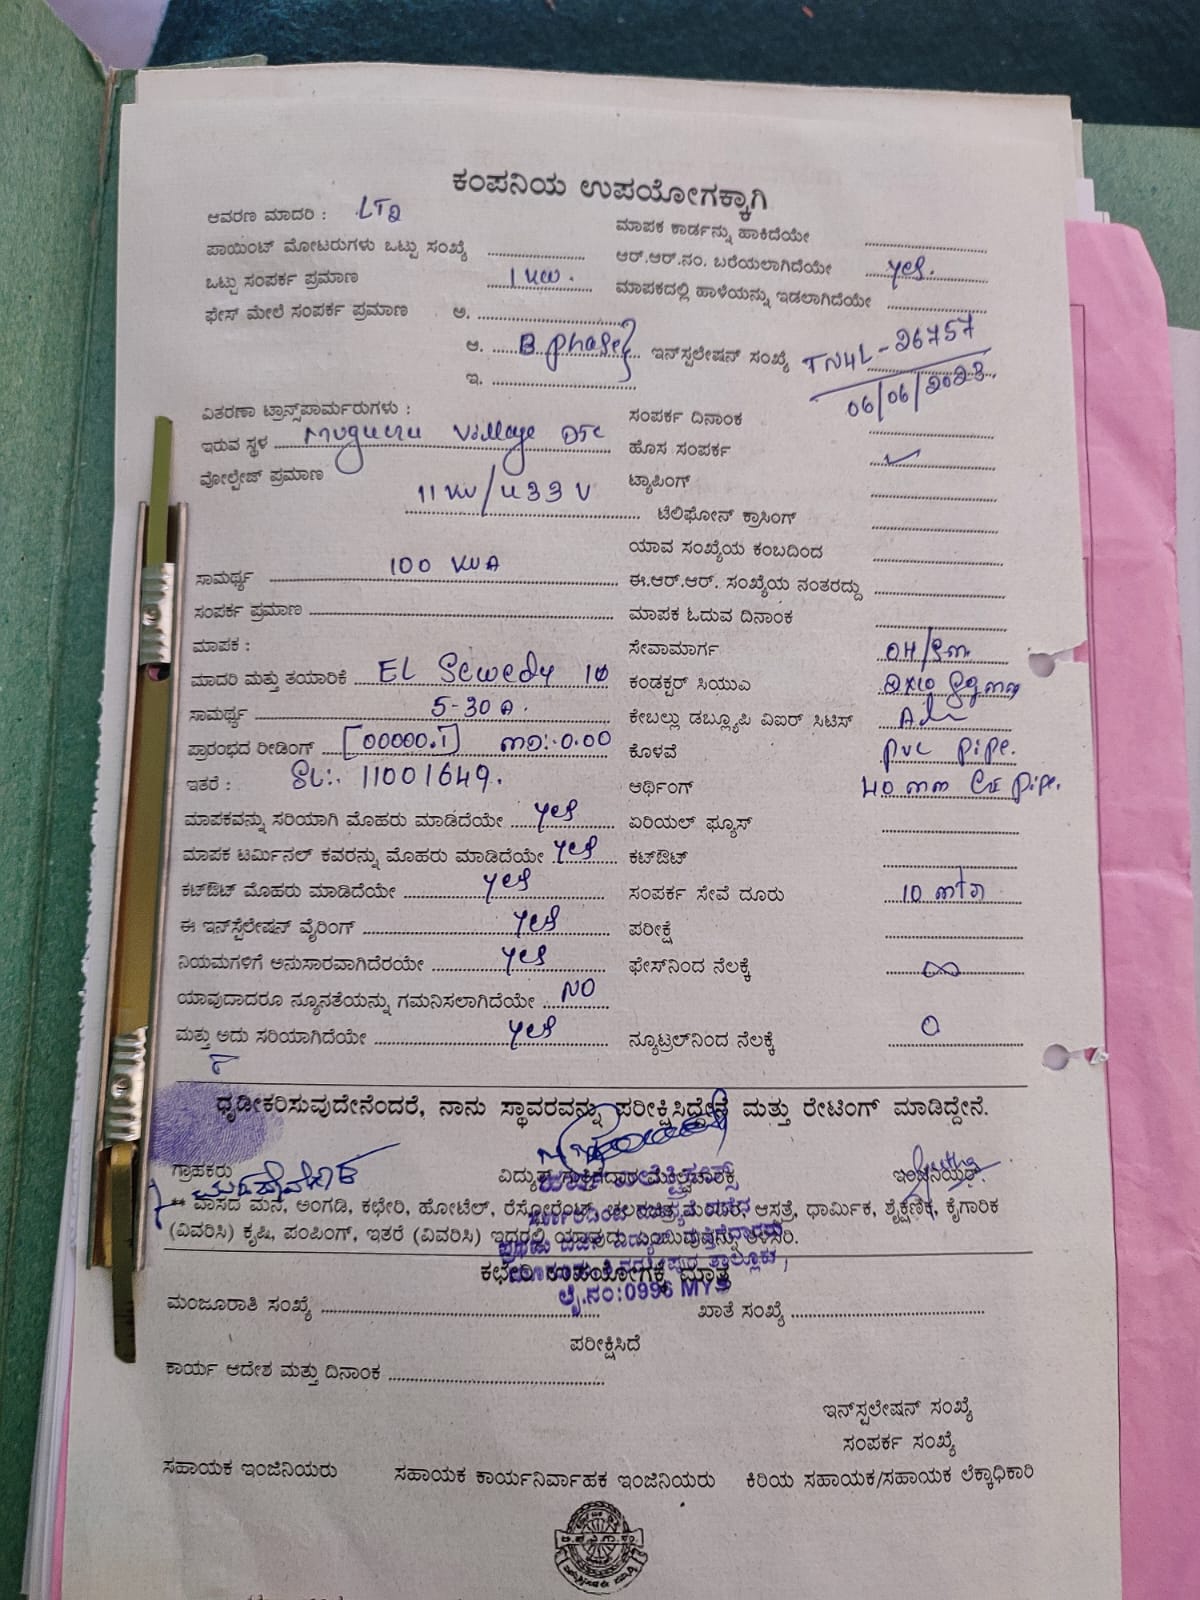 ಕಂಪನಿಯ ಉಪಯೋಗಕ್ಕಾಗಿ
ಆವರಣ ಮಾದರಿ : LT2
ಮಾಪಕ ಕಾರ್ಡನ್ನು ಹಾಕಿದೆಯೇ
ಪಾಯಿಂಟ್ ಮೋಟರುಗಳು ಒಟ್ಟು ಸಂಖ್ಯೆ
ಆರ್.ಆರ್.ನಂ. ಬರೆಯಲಾಗಿದೆಯೇ yes.
ಒಟ್ಟು ಸಂಪರ್ಕ ಪ್ರಮಾಣ 1 KW.
ಮಾಪಕದಲ್ಲಿ ಹಾಳೆಯನ್ನು ಇಡಲಾಗಿದೆಯೇ
ಫೇಸ್ ಮೇಲೆ ಸಂಪರ್ಕ ಪ್ರಮಾಣ ಅ.
ಆ. B phase
ಇನ್‌ಸ್ಪಲೇಷನ್ ಸಂಖ್ಯೆ TN4L-26757
06/06/2023
ಇ.
ವಿತರಣಾ ಟ್ರಾನ್ಸ್‌ಪಾರ್ಮರುಗಳು :
ಸಂಪರ್ಕ ದಿನಾಂಕ
ಇರುವ ಸ್ಥಳ Muguru Village DTC
ಹೊಸ ಸಂಪರ್ಕ ✓
ವೋಲ್ಟೇಜ್ ಪ್ರಮಾಣ 11 KV/433 V
ಟ್ಯಾಪಿಂಗ್
ಟೆಲಿಫೋನ್ ಕ್ರಾಸಿಂಗ್
ಯಾವ ಸಂಖ್ಯೆಯ ಕಂಬದಿಂದ
ಸಾಮರ್ಥ್ಯ 100 KVA
ಈ.ಆರ್.ಆರ್. ಸಂಖ್ಯೆಯ ನಂತರದ್ದು
ಸಂಪರ್ಕ ಪ್ರಮಾಣ
ಮಾಪಕ ಓದುವ ದಿನಾಂಕ
ಮಾಪಕ :
ಸೇವಾಮಾರ್ಗ OH/Sm.
ಮಾದರಿ ಮತ್ತು ತಯಾರಿಕೆ EL Sewedy 1Φ
ಕಂಡಕ್ಟರ್ ಸಿಯುಎ 2x10 Sqmm
ಸಾಮರ್ಥ್ಯ 5-30 A.
ಕೇಬಲ್ಲು ಡಬ್ಲ್ಯೂಪಿ ವಿಐರ್ ಸಿಟಿಸ್
ಪ್ರಾರಂಭದ ರೀಡಿಂಗ್ [00000.1] MD:-0.00
ಕೊಳವೆ PVC Pipe.
ಇತರೆ : SL:. 11001649.
ಆರ್ಥಿಂಗ್ 40 mm GI Pipe.
ಮಾಪಕವನ್ನು ಸರಿಯಾಗಿ ಮೊಹರು ಮಾಡಿದೆಯೇ yes
ಏರಿಯಲ್ ಫ್ಯೂಸ್
ಮಾಪಕ ಟರ್ಮಿನಲ್ ಕವರನ್ನು ಮೊಹರು ಮಾಡಿದೆಯೇ yes
ಕಟ್‌ಔಟ್
ಕಟ್‌ಔಟ್ ಮೊಹರು ಮಾಡಿದೆಯೇ yes
ಸಂಪರ್ಕ ಸೇವೆ ದೂರು 10 mtr
ಈ ಇನ್‌ಸ್ಪೆಲೇಷನ್ ವೈರಿಂಗ್ yes
ಪರೀಕ್ಷೆ
ನಿಯಮಗಳಿಗೆ ಅನುಸಾರವಾಗಿದೆರಯೇ yes
ಫೇಸ್‌ನಿಂದ ನೆಲಕ್ಕೆ ∞
ಯಾವುದಾದರೂ ನ್ಯೂನತೆಯನ್ನು ಗಮನಿಸಲಾಗಿದೆಯೇ NO
ಮತ್ತು ಅದು ಸರಿಯಾಗಿದೆಯೇ yes
ನ್ಯೂಟ್ರಲ್‌ನಿಂದ ನೆಲಕ್ಕೆ 0
ಧೃಡೀಕರಿಸುವುದೇನೆಂದರೆ, ನಾನು ಸ್ಥಾವರವನ್ನು ಪರೀಕ್ಷಿಸಿದ್ದೇನೆ ಮತ್ತು ರೇಟಿಂಗ್ ಮಾಡಿದ್ದೇನೆ.
ಗ್ರಾಹಕರು
ವಿದ್ಯುತ್
ಇಂಜಿನಿಯರ್
** ವಾಸದ ಮನೆ, ಅಂಗಡಿ, ಕಛೇರಿ, ಹೋಟೆಲ್, ರೆಸ್ಟೋರೆಂಟ್, ಚಲನಚಿತ್ರ ಮಂದಿರ, ಆಸ್ಪತ್ರೆ, ಧಾರ್ಮಿಕ, ಶೈಕ್ಷಣಿಕ, ಕೈಗಾರಿಕ
(ವಿವರಿಸಿ) ಕೃಷಿ, ಪಂಪಿಂಗ್, ಇತರೆ (ವಿವರಿಸಿ) ಇದರಲ್ಲಿ ಯಾವುದು ತಿಳಿಸಿರಿ.
ಕಛೇರಿ ಉಪಯೋಗಕ್ಕೆ ಮಾತ್ರ
ಲೈ.ನಂ:0996 MYS
ಮಂಜೂರಾತಿ ಸಂಖ್ಯೆ
ಖಾತೆ ಸಂಖ್ಯೆ
ಪರೀಕ್ಷಿಸಿದೆ
ಕಾರ್ಯ ಆದೇಶ ಮತ್ತು ದಿನಾಂಕ
ಇನ್‌ಸ್ಪಲೇಷನ್ ಸಂಖ್ಯೆ
ಸಂಪರ್ಕ ಸಂಖ್ಯೆ
ಸಹಾಯಕ ಇಂಜಿನಿಯರು ಸಹಾಯಕ ಕಾರ್ಯನಿರ್ವಾಹಕ ಇಂಜಿನಿಯರು ಕಿರಿಯ ಸಹಾಯಕ/ಸಹಾಯಕ ಲೆಕ್ಕಾಧಿಕಾರಿ